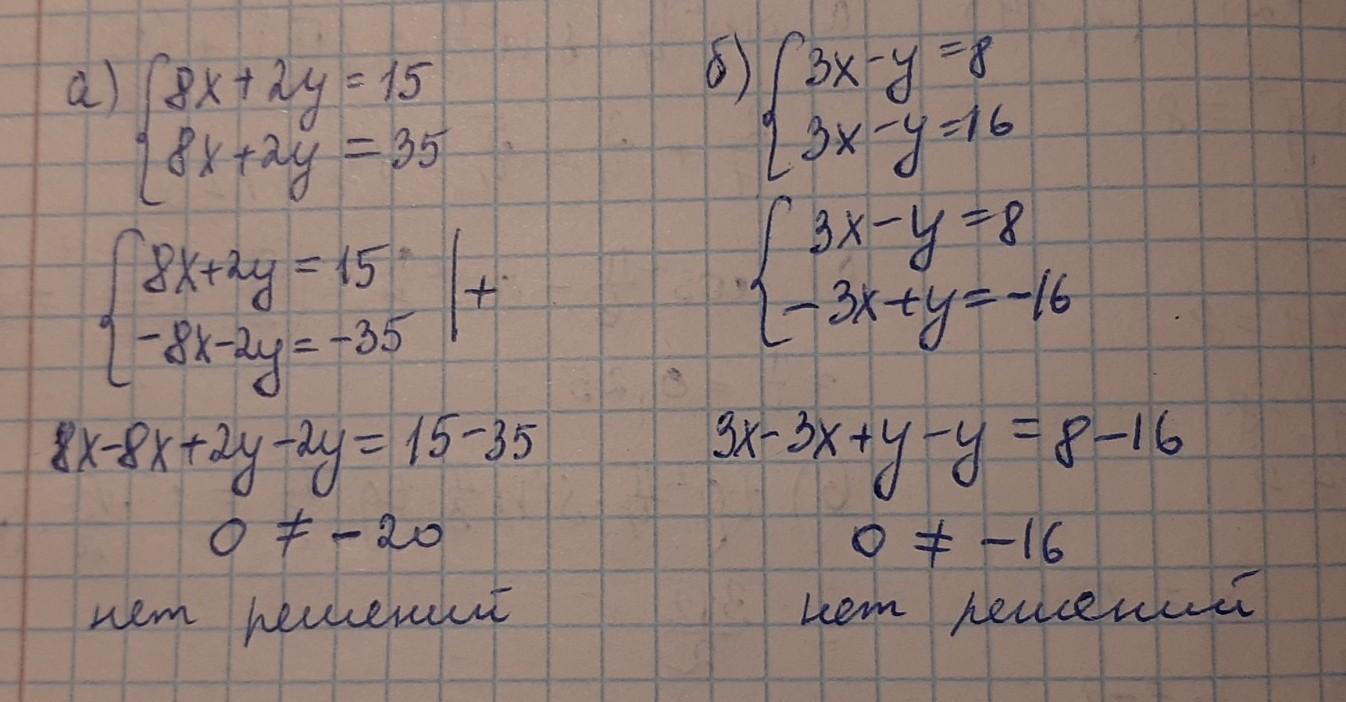 а) { 8x+2y = 15
8x+2y = 35
{ 8x+2y = 15 | +
-8x-2y = -35
8x-8x+2y-2y = 15-35
0 ≠ -20
нет решений
б) { 3x-y = 8
3x-y = 16
{ 3x-y = 8
-3x+y = -16
3x-3x+y-y = 8-16
0 ≠ -16
нет решений